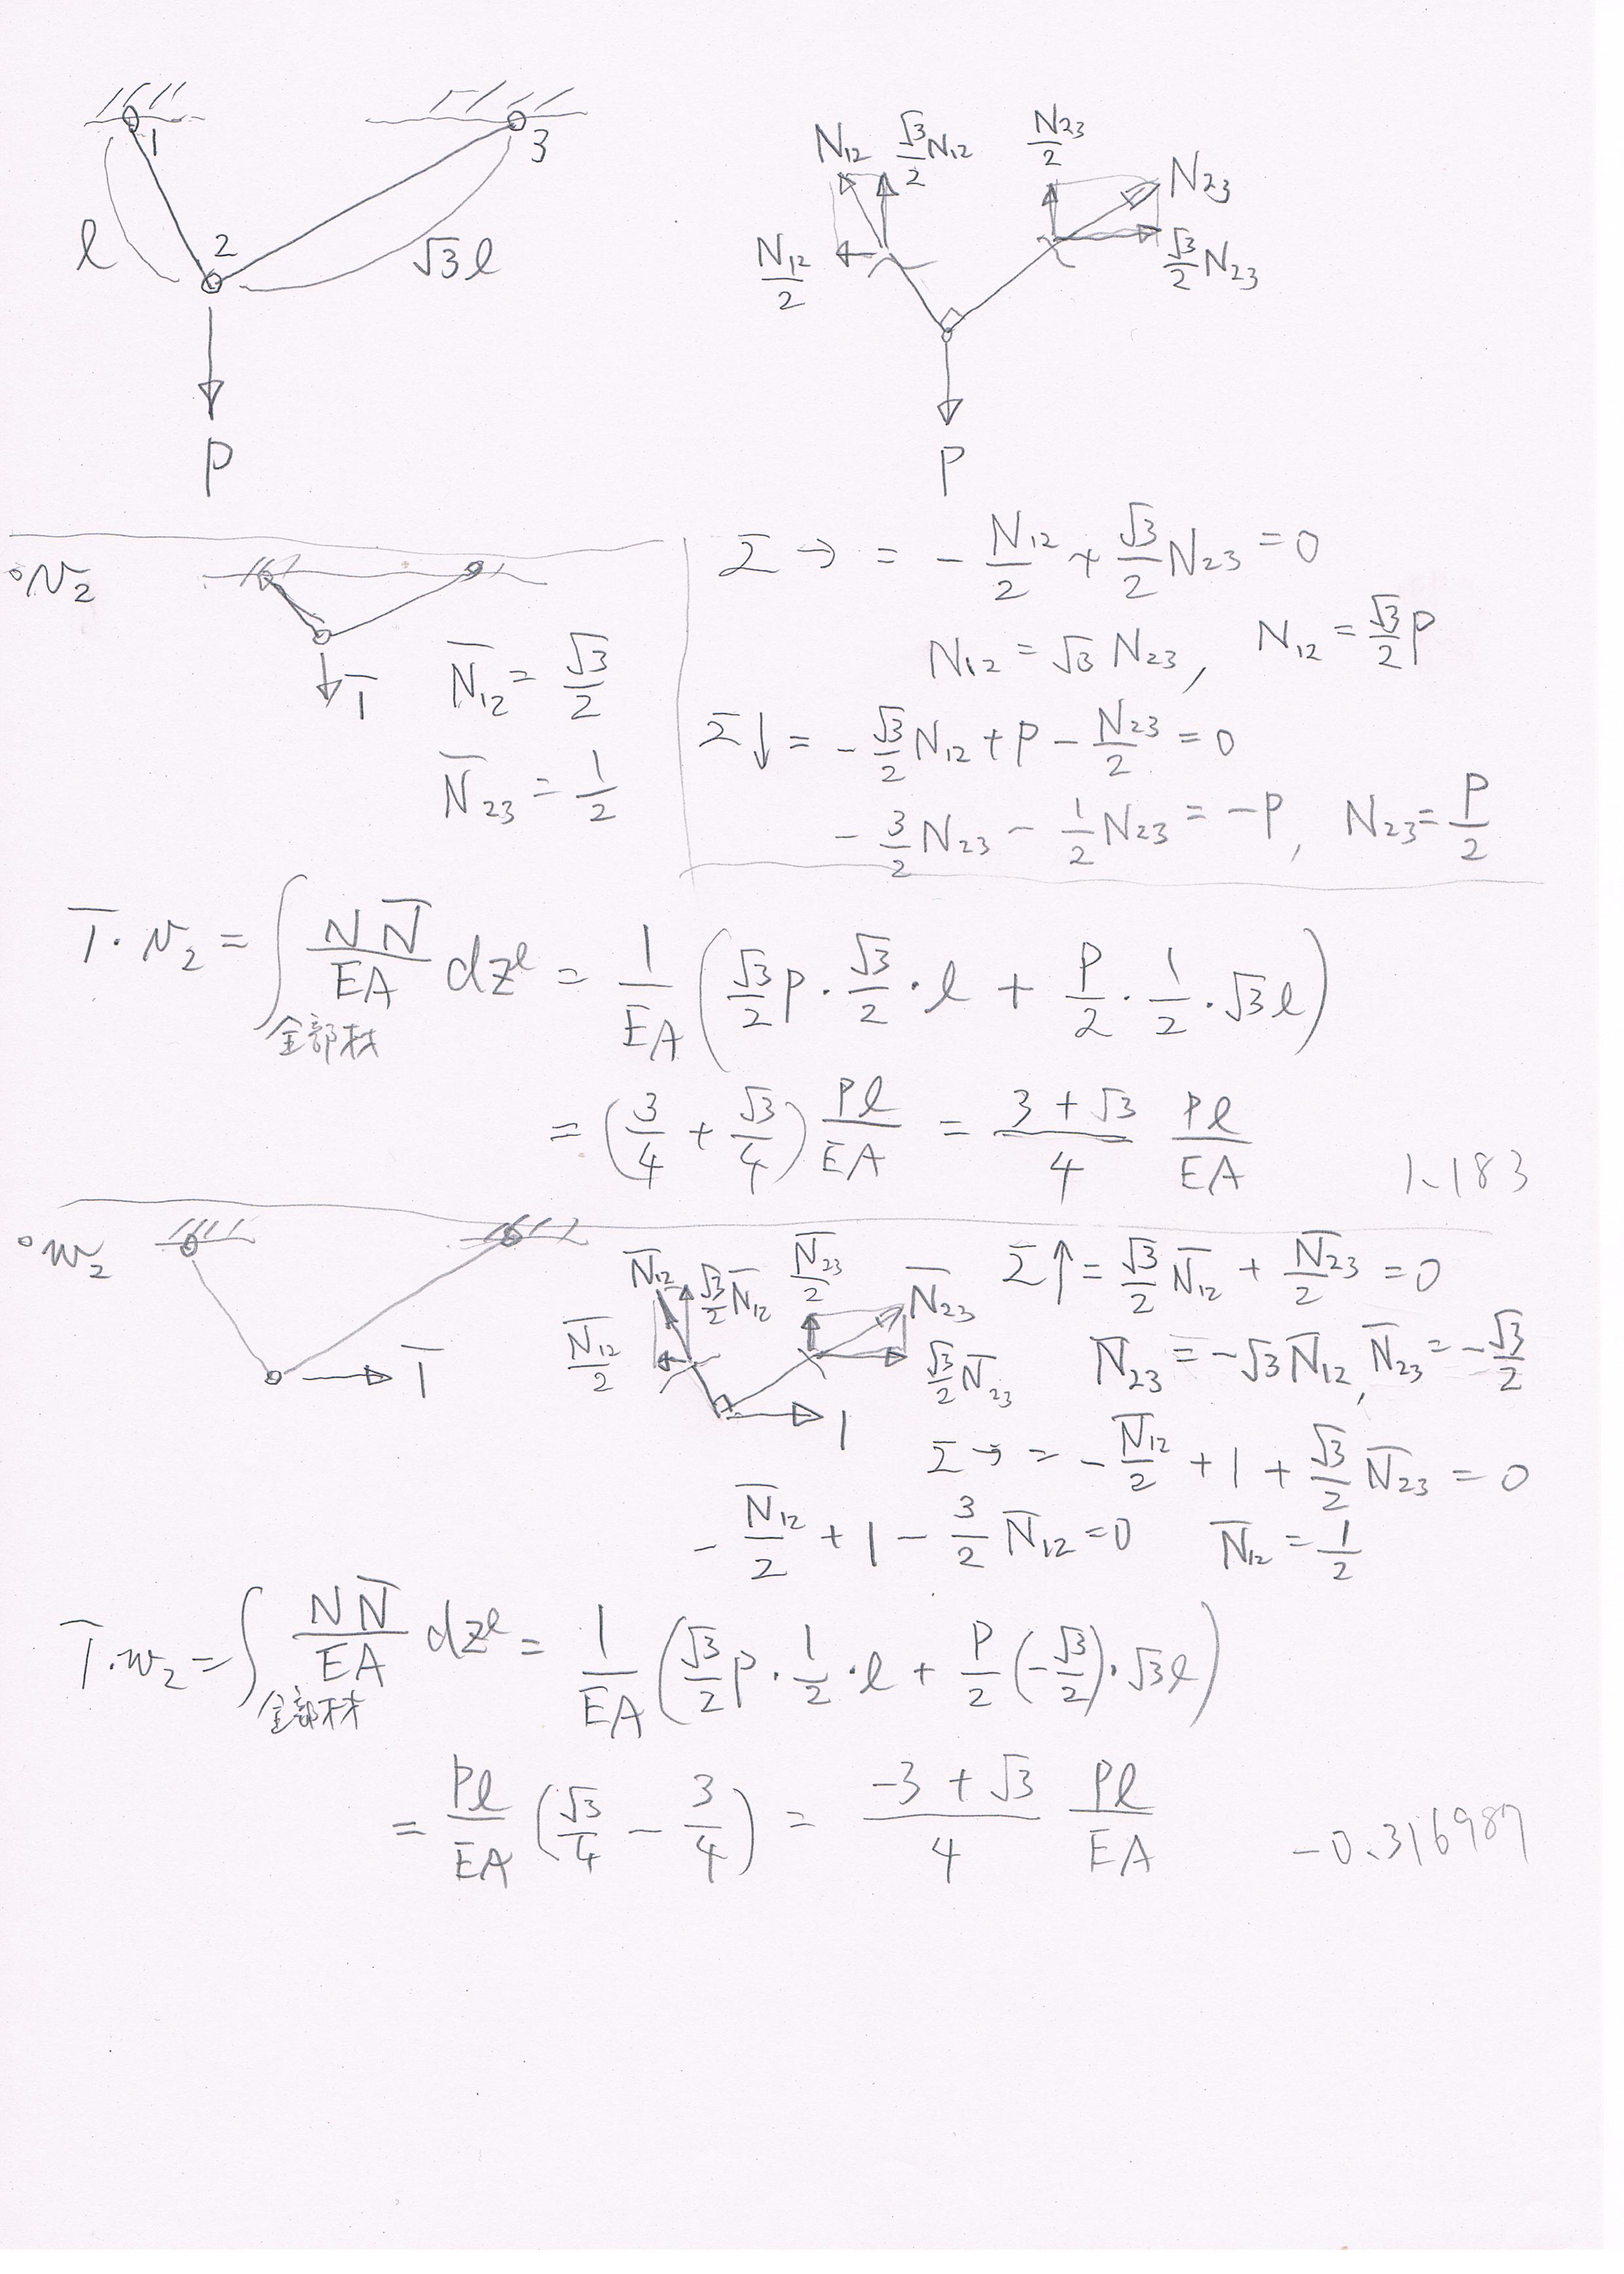 1
3
l
2
√3 l
P
N₁₂ √3/2 N₁₂ N₂₃/2 N₂₃
N₁₂/2 √3/2 N₂₃
P
Σ→ = - N₁₂/2 + √3/2 N₂₃ = 0
N₁₂ = √3 N₂₃, N₁₂ = √3/2 P
Σ↓ = - √3/2 N₁₂ + P - N₂₃/2 = 0
- 3/2 N₂₃ - 1/2 N₂₃ = -P, N₂₃ = P/2
°v₂
1̅
N̅₁₂ = √3/2
N̅₂₃ = 1/2
1̅·v₂ = ∫全部材 NN̅/EA dzˡ = 1/EA (√3/2 P · √3/2 · l + P/2 · 1/2 · √3 l)
= (3/4 + √3/4) Pl/EA = 3+√3/4 Pl/EA 1.183
°w₂
1̅
N̅₁₂ √3/2 N̅₁₂ N̅₂₃/2 N̅₂₃
N̅₁₂/2 √3/2 N̅₂₃
1
Σ↑ = √3/2 N̅₁₂ + N̅₂₃/2 = 0
N̅₂₃ = -√3 N̅₁₂, N̅₂₃ = -√3/2
Σ→ = - N̅₁₂/2 + 1 + √3/2 N̅₂₃ = 0
- N̅₁₂/2 + 1 - 3/2 N̅₁₂ = 0 N̅₁₂ = 1/2
1̅·w₂ = ∫全部材 NN̅/EA dzˡ = 1/EA (√3/2 P · 1/2 · l + P/2 (-√3/2) · √3 l)
= Pl/EA (√3/4 - 3/4) = -3+√3/4 Pl/EA -0.316987